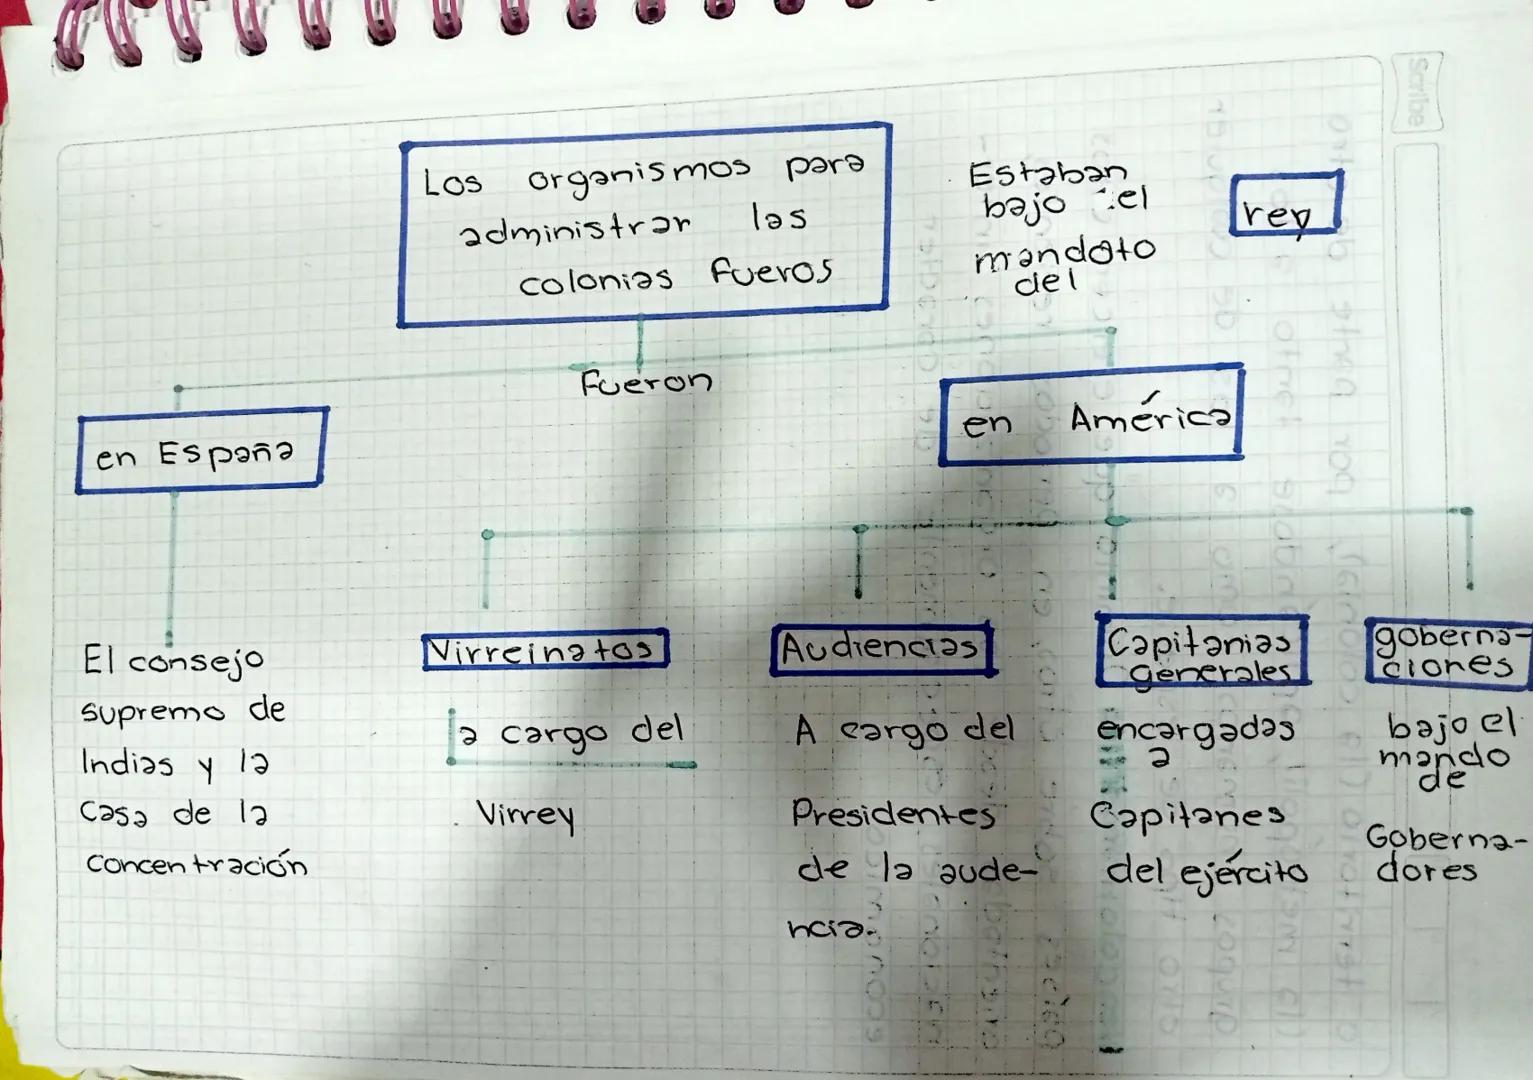 Scribe
Los organismos para
administrar las
colonias fueros
Estaban
bajo el
mandato
del
rey
Fueron
en España
en América
El consejo
supremo de
Indias y la
Casa de la
concentración
Virreinatos
a cargo del
Virrey
Audiencias
A cargo del
Presidentes
de la aude-
ncia.
Capitanias
generales
encargadas
a
Capitanes
del ejército
goberna-
ciones
bajo el
mando
de
Goberna-
dores